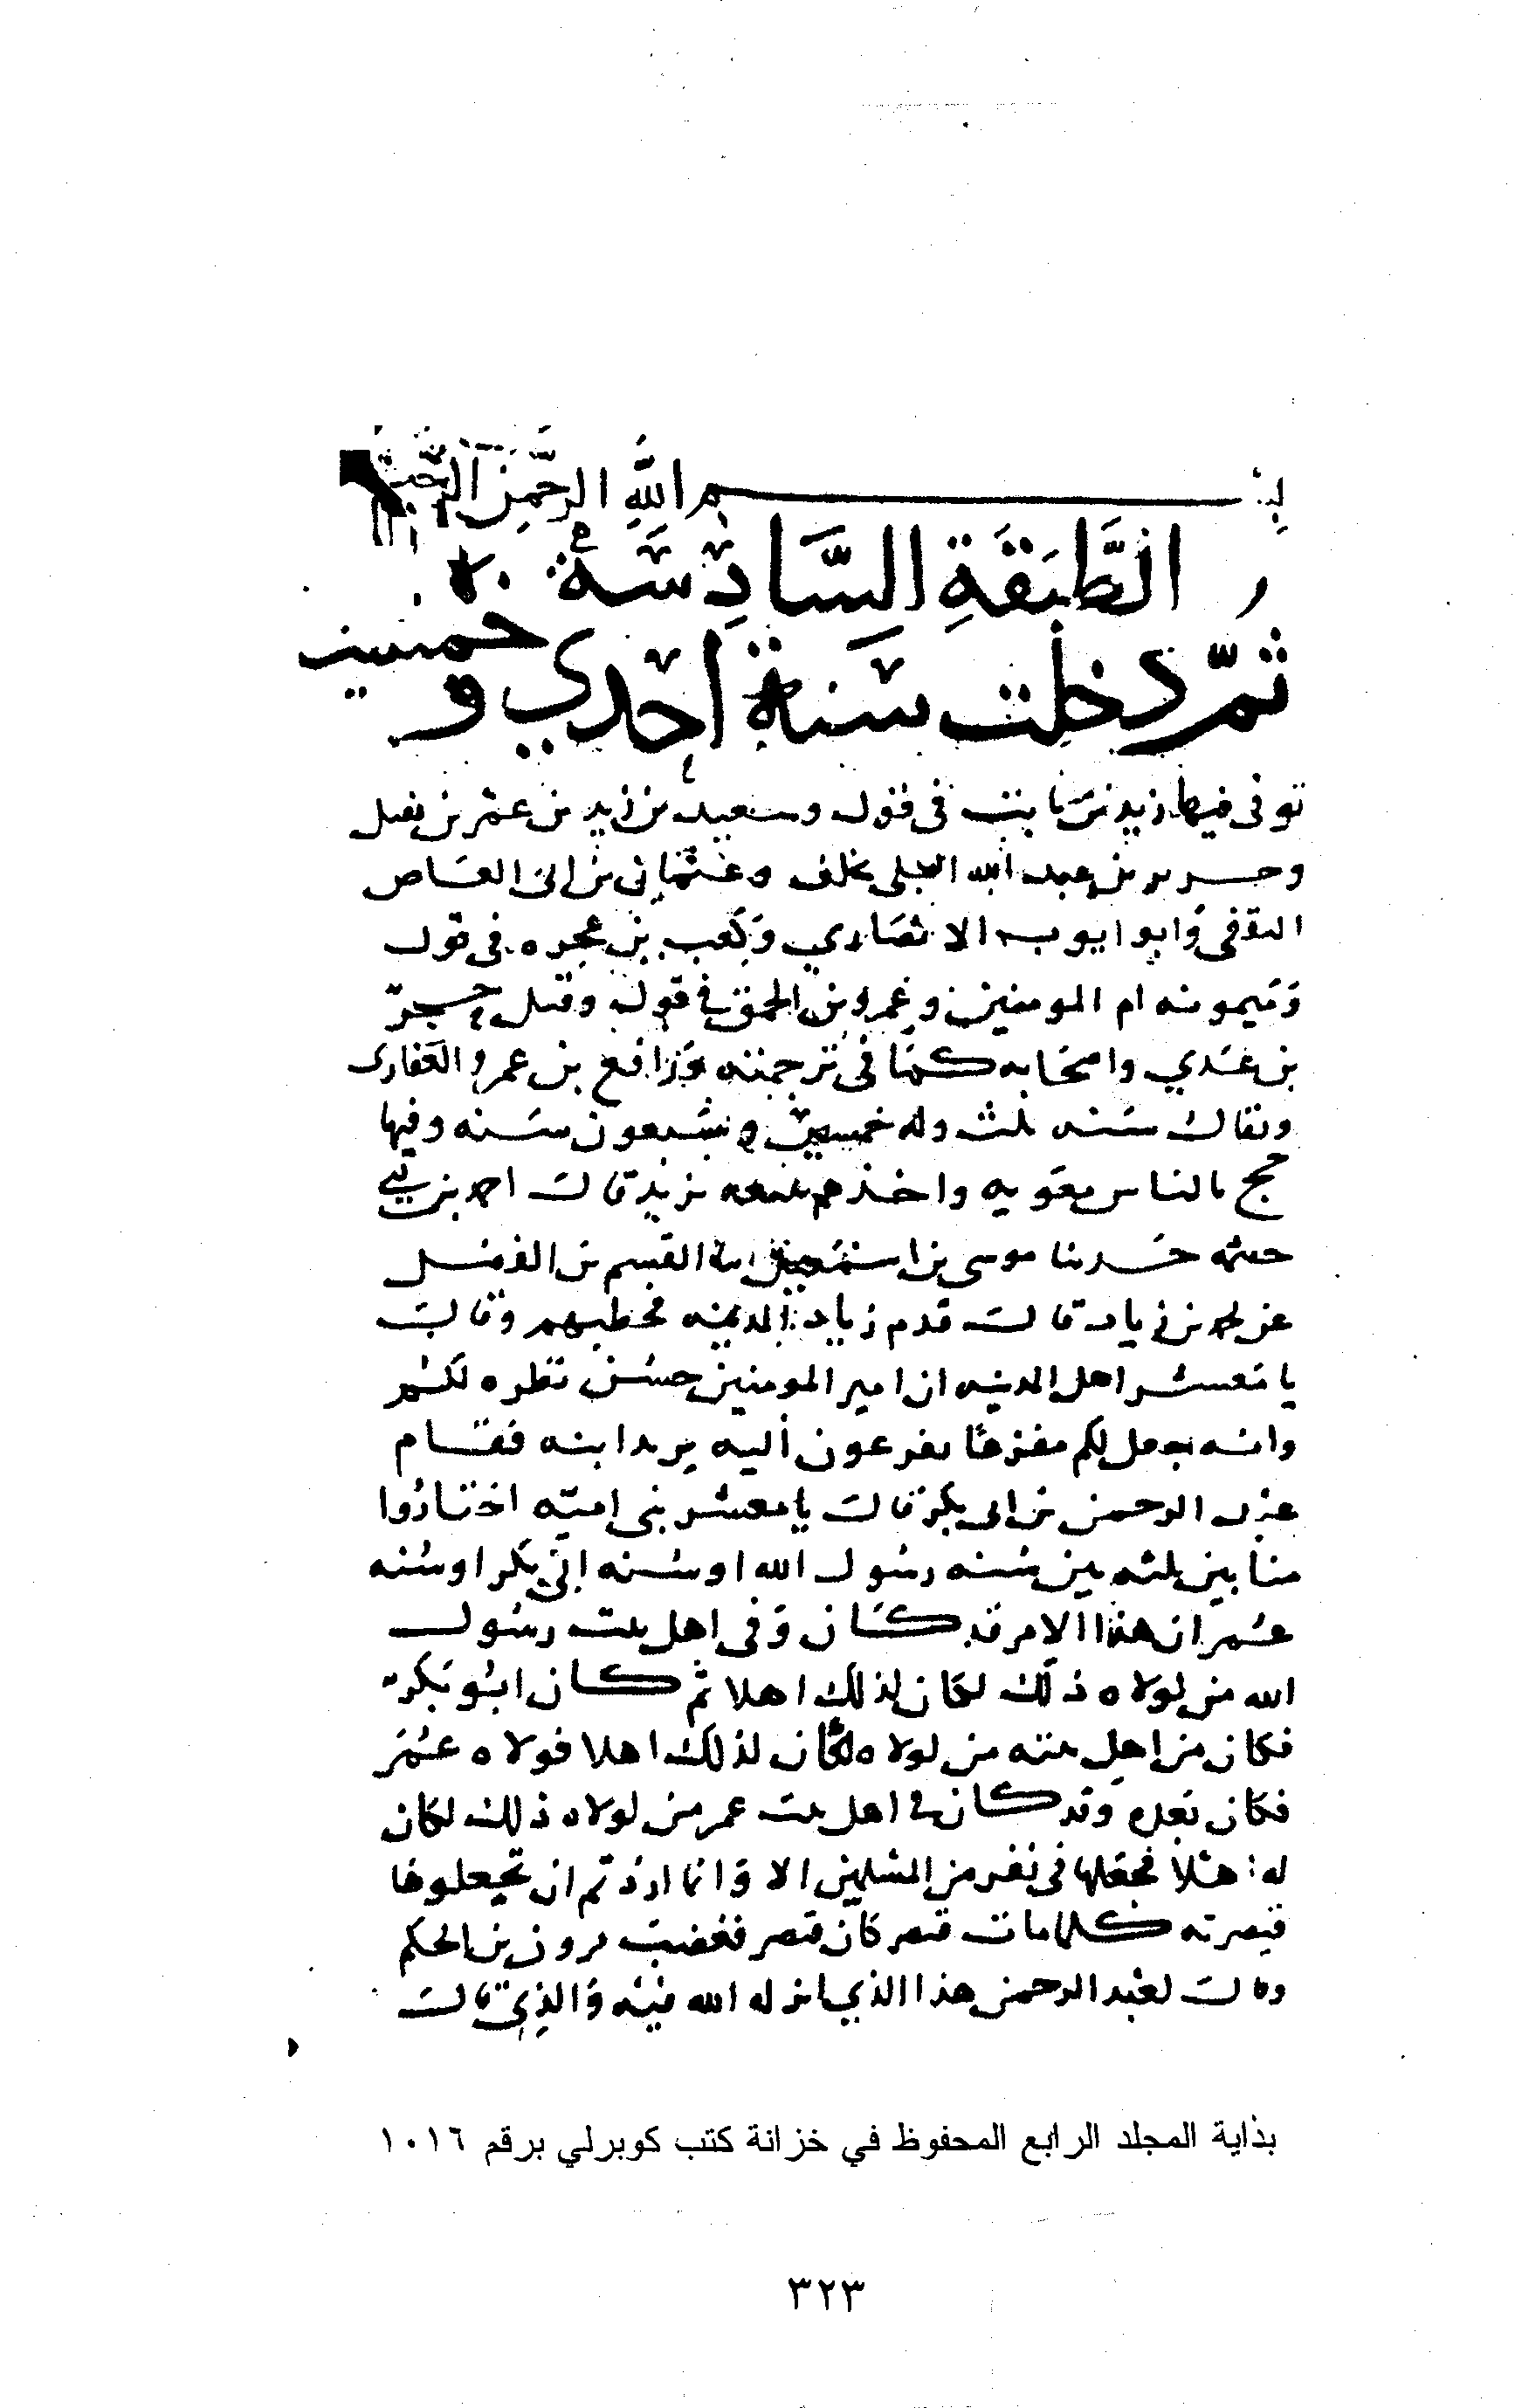 بسم الله الرحمن الرحيم
الطَّبَقَةِ السَّادِسَة
ثمّ دخلت سَنة احدي و خمسين
توفى فيها زيد بن ثابت فى قول وسعيد بن زيد بن عمر بن نفيل
وجرير بن عبد الله البجلى بخلف وعثمان بن ابى العاص
الثقفى وابو ايوب الانصاري وكعب بن عجره فى قول
وميمونه ام المومنين وعمرو بن الحمق في قول وقتل حجر
بن عدي واصحابه كما فى ترجمته ورافع بن عمرو الغفارى
ويقال سنه ثلث وله خمس وسبعون سنه وفيها
حج بالناس معويه واخذهم ببيعه يزيد قال احمد بن ابي
خيثمه حدثنا موسى بن اسمعيل ثنا القسم بن الفضل
عن محمد بن زياد قال قدم زياد المدينه فخطبهم وقال
يا معشر اهل المدينه ان امير المومنين حسن نظره لكم
وانه جعل لكم مفزعا تفزعون اليه يزيد ابنه فقام
عبد الرحمن بن ابى بكر قال يا معشر بنى اميه اختاروا
منا بين ثلثه بين سنه رسول الله او سنه ابى بكر او سنه
عمر ان هذا الامر قد كان وفى اهل بيت رسول
الله من لو ولاه ذلك لكان لذلك اهلا ثم كان ابو بكر
فكان من اهل بيته من لو ولاه لكان لذلك اهلا فولاه عمر
فكان بعده وقد كان في اهل بيت عمر من لو ولاه ذلك لكان
له اهلا فجعلها فى نفر من المسلمين الا وانما اردتم ان تجعلوها
قيصريه كلما مات قيصر كان قيصر فغضب مرون بن الحكم
وقال لعبد الرحمن هذا الذي انزل الله فيه والذي قال
بداية المجلد الرابع المحفوظ في خزانة كتب كوبرلي برقم ١٠١٦
٣٢٣